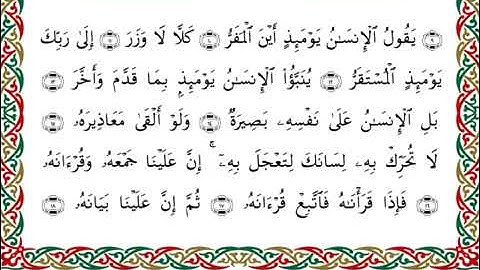 يَقُولُ ٱلْإِنسَـٰنُ يَوْمَئِذٍ أَيْنَ ٱلْمَفَرُّ كَلَّا لَا وَزَرَ إِلَىٰ رَبِّكَ
يَوْمَئِذٍ ٱلْمُسْتَقَرُّ يُنَبَّؤُا۟ ٱلْإِنسَـٰنُ يَوْمَئِذٍ بِمَا قَدَّمَ وَأَخَّرَ
بَلِ ٱلْإِنسَـٰنُ عَلَىٰ نَفْسِهِۦ بَصِيرَةٌ وَلَوْ أَلْقَىٰ مَعَاذِيرَهُۥ
لَا تُحَرِّكْ بِهِۦ لِسَانَكَ لِتَعْجَلَ بِهِۦٓ ۚ إِنَّ عَلَيْنَا جَمْعَهُۥ وَقُرْءَانَهُۥ
فَإِذَا قَرَأْنَـٰهُ فَٱتَّبِعْ قُرْءَانَهُۥ ثُمَّ إِنَّ عَلَيْنَا بَيَانَهُۥ